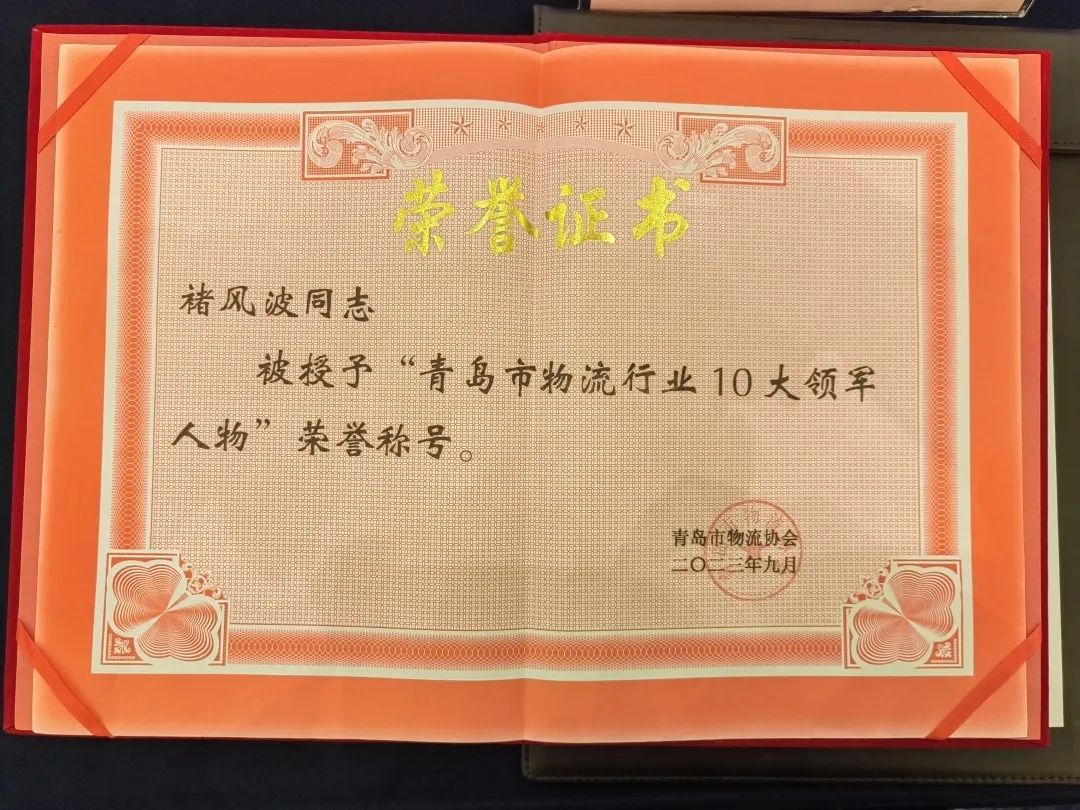 荣誉证书
褚风波同志
被授予“青岛市物流行业10大领军
人物”荣誉称号。
青岛市物流协会
二〇二三年九月